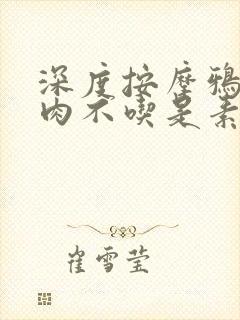 深度按摩鸦
肉不喫是素
崔雪莹